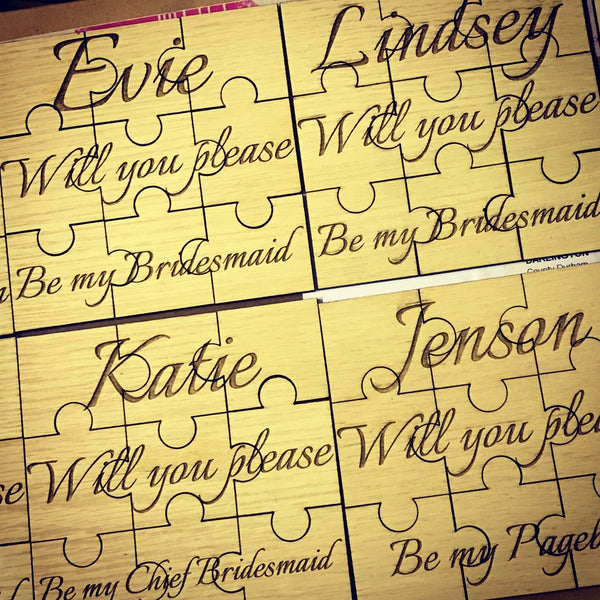 Evie
Will you please
Be my Bridesmaid
Lindsey
Will you please
Be my Bridesmaid
DARLINGTON
County Durham
Katie
Will you please
Be my Chief Bridesmaid
Jenson
Will you plea
Be my Pageb
se